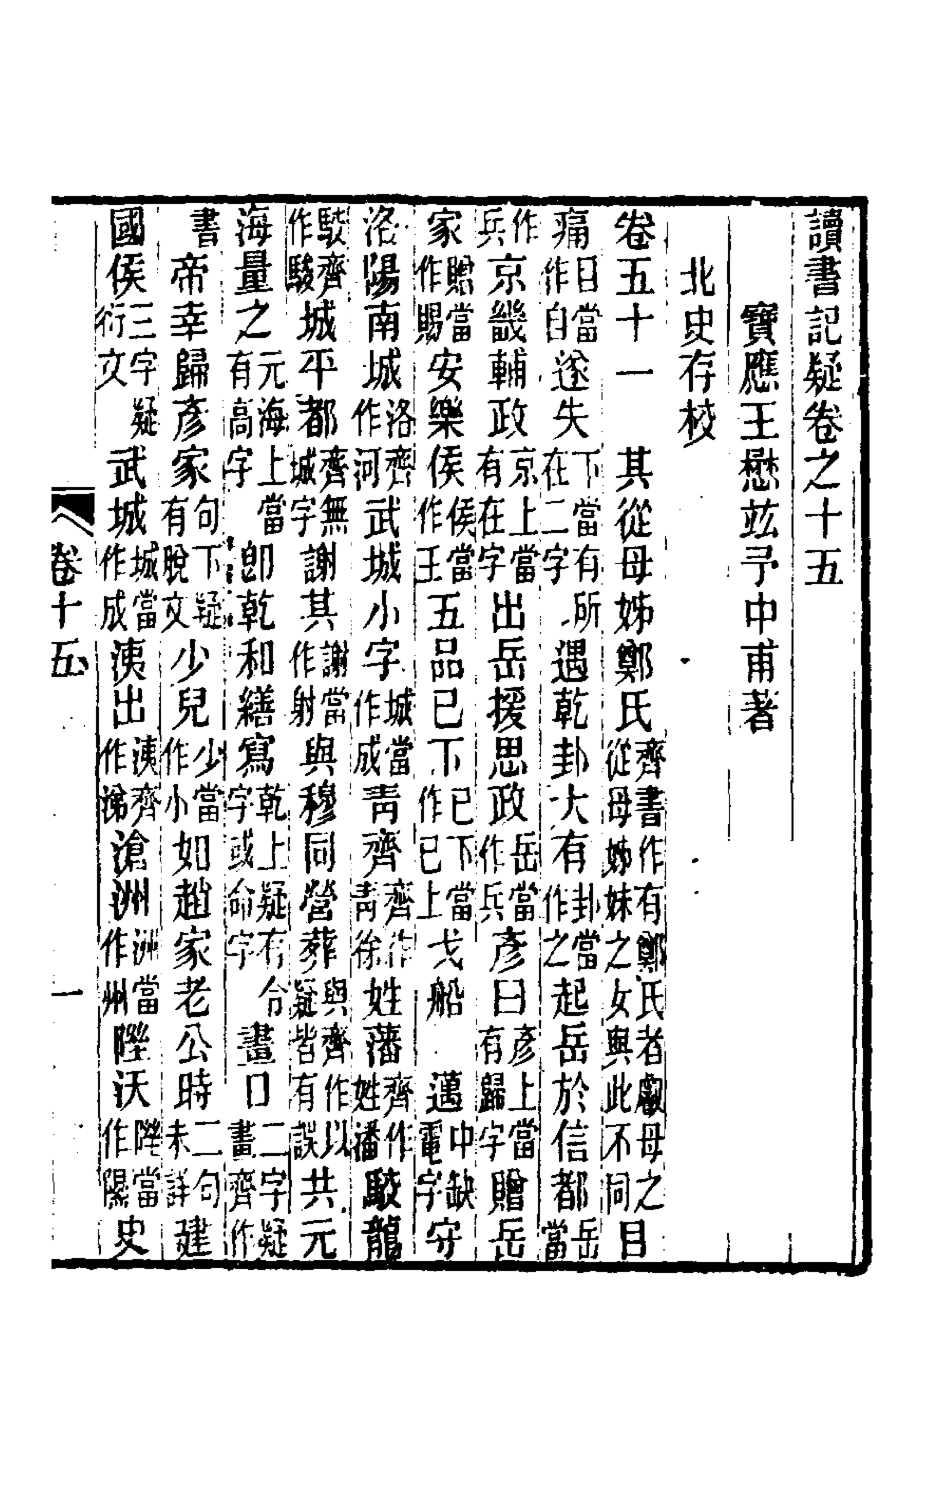 讀書記疑卷之十五
寶應王懋竑予中甫著
北史存校
卷五十一　其從母姊鄭氏齊書作有鄭氏者叡母之從母姊妹之女與此不同目
痛目當作自遂失下當有所在二字遇乾卦大有卦當作之起岳於信都岳當
作兵京畿輔政京上當有在字出岳援思政岳當作兵彥曰彥上當有歸字贈岳
家贈當作賜安樂侯侯當作王五品已下已下當作已上戈船　邁中缺電字守
洛陽南城洛齊作河武城小字城當作成青齊齊作青徐姓藩齊作姓潘駮龍
駮齊作駿城平都齊無城字謝其謝當作射與穆同營葬與齊作以疑皆有誤共元
海量之元海上當有高字卽乾和繕寫乾上疑有令字或命字畫日二字疑畫齊作
書帝幸歸彥家句下疑有脫文少兒少當作小如趙家老公時二句未詳建
國侯三字疑衍文武城城當作成洟出洟齊作涕滄洲洲當作州陞沃陞當作隰史
卷十五　一